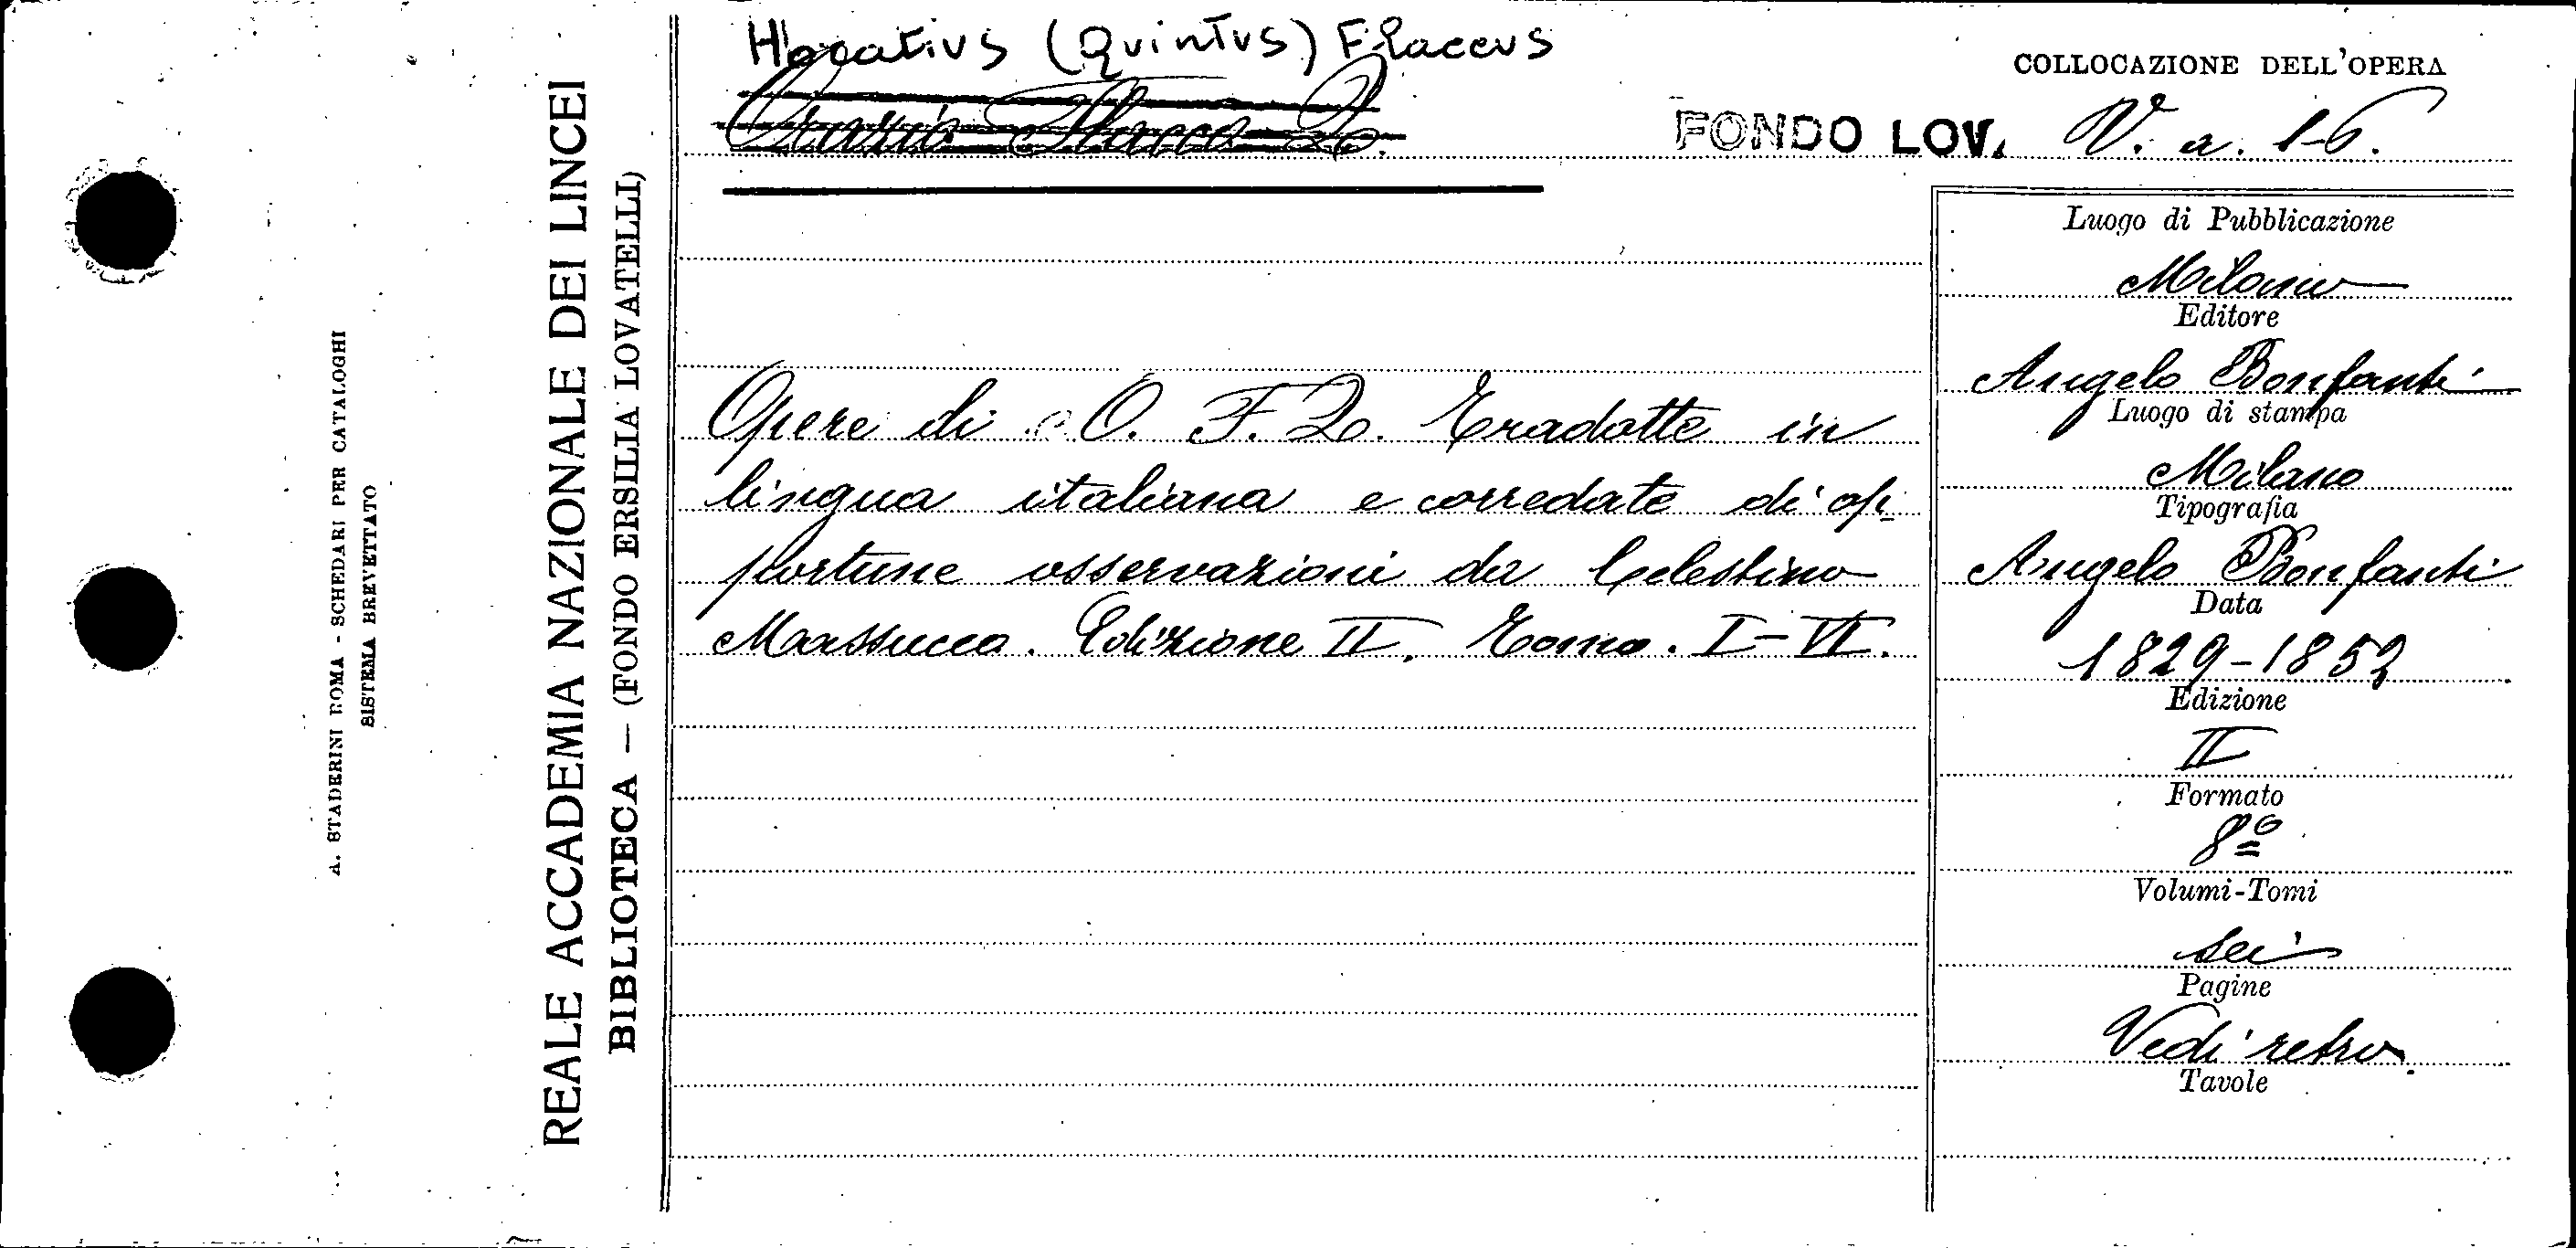 Horativs (Qvintvs) Flaccvs
Orazio Flacco Q.
COLLOCAZIONE DELL'OPERA
FONDO LOV. V. a. 1-6.
REALE ACCADEMIA NAZIONALE DEI LINCEI
BIBLIOTECA — (FONDO ERSILIA LOVATELLI)
A. STADERINI ROMA - SCHEDARI PER CATALOGHI
SISTEMA BREVETTATO
Opere di O. F. Q. Tradotte in
lingua italiana e corredate di op-
portune osservazioni da Celestino
Massucco. Edizione II. Tomo. I-VI.
Luogo di Pubblicazione
Milano
Editore
Angelo Bonfanti
Luogo di stampa
Milano
Tipografia
Angelo Bonfanti
Data
1829-1852
Edizione
II
Formato
8º
Volumi-Tomi
sei
Pagine
Vedi retro
Tavole